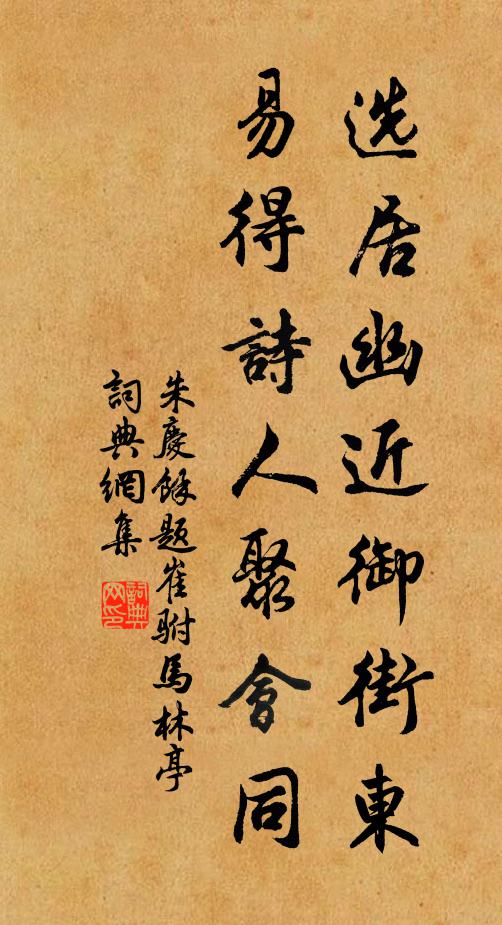 选居幽近御街東
易得詩人聚會同
朱慶餘題崔駙馬林亭
詞典網集
詞典网印